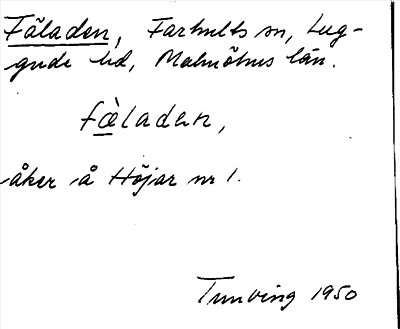 Fäladen, Farhults sn, Lug-
gude hd, Malmöhus län.
fæ̀laden,
åker å Höjar nr 1.
Tunving 1950